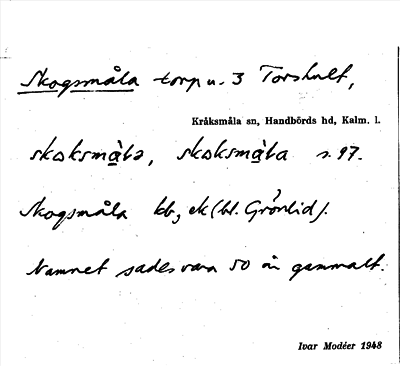 Skogsmåla torp u. 3 Torshult,
Kråksmåla sn, Handbörds hd, Kalm. l.
skoksmåla, skoksmåla s. 97.
Skogsmåla bb, ek (bl. Grönlid).
Namnet sades vara 50 år gammalt.
Ivar Modéer 1948